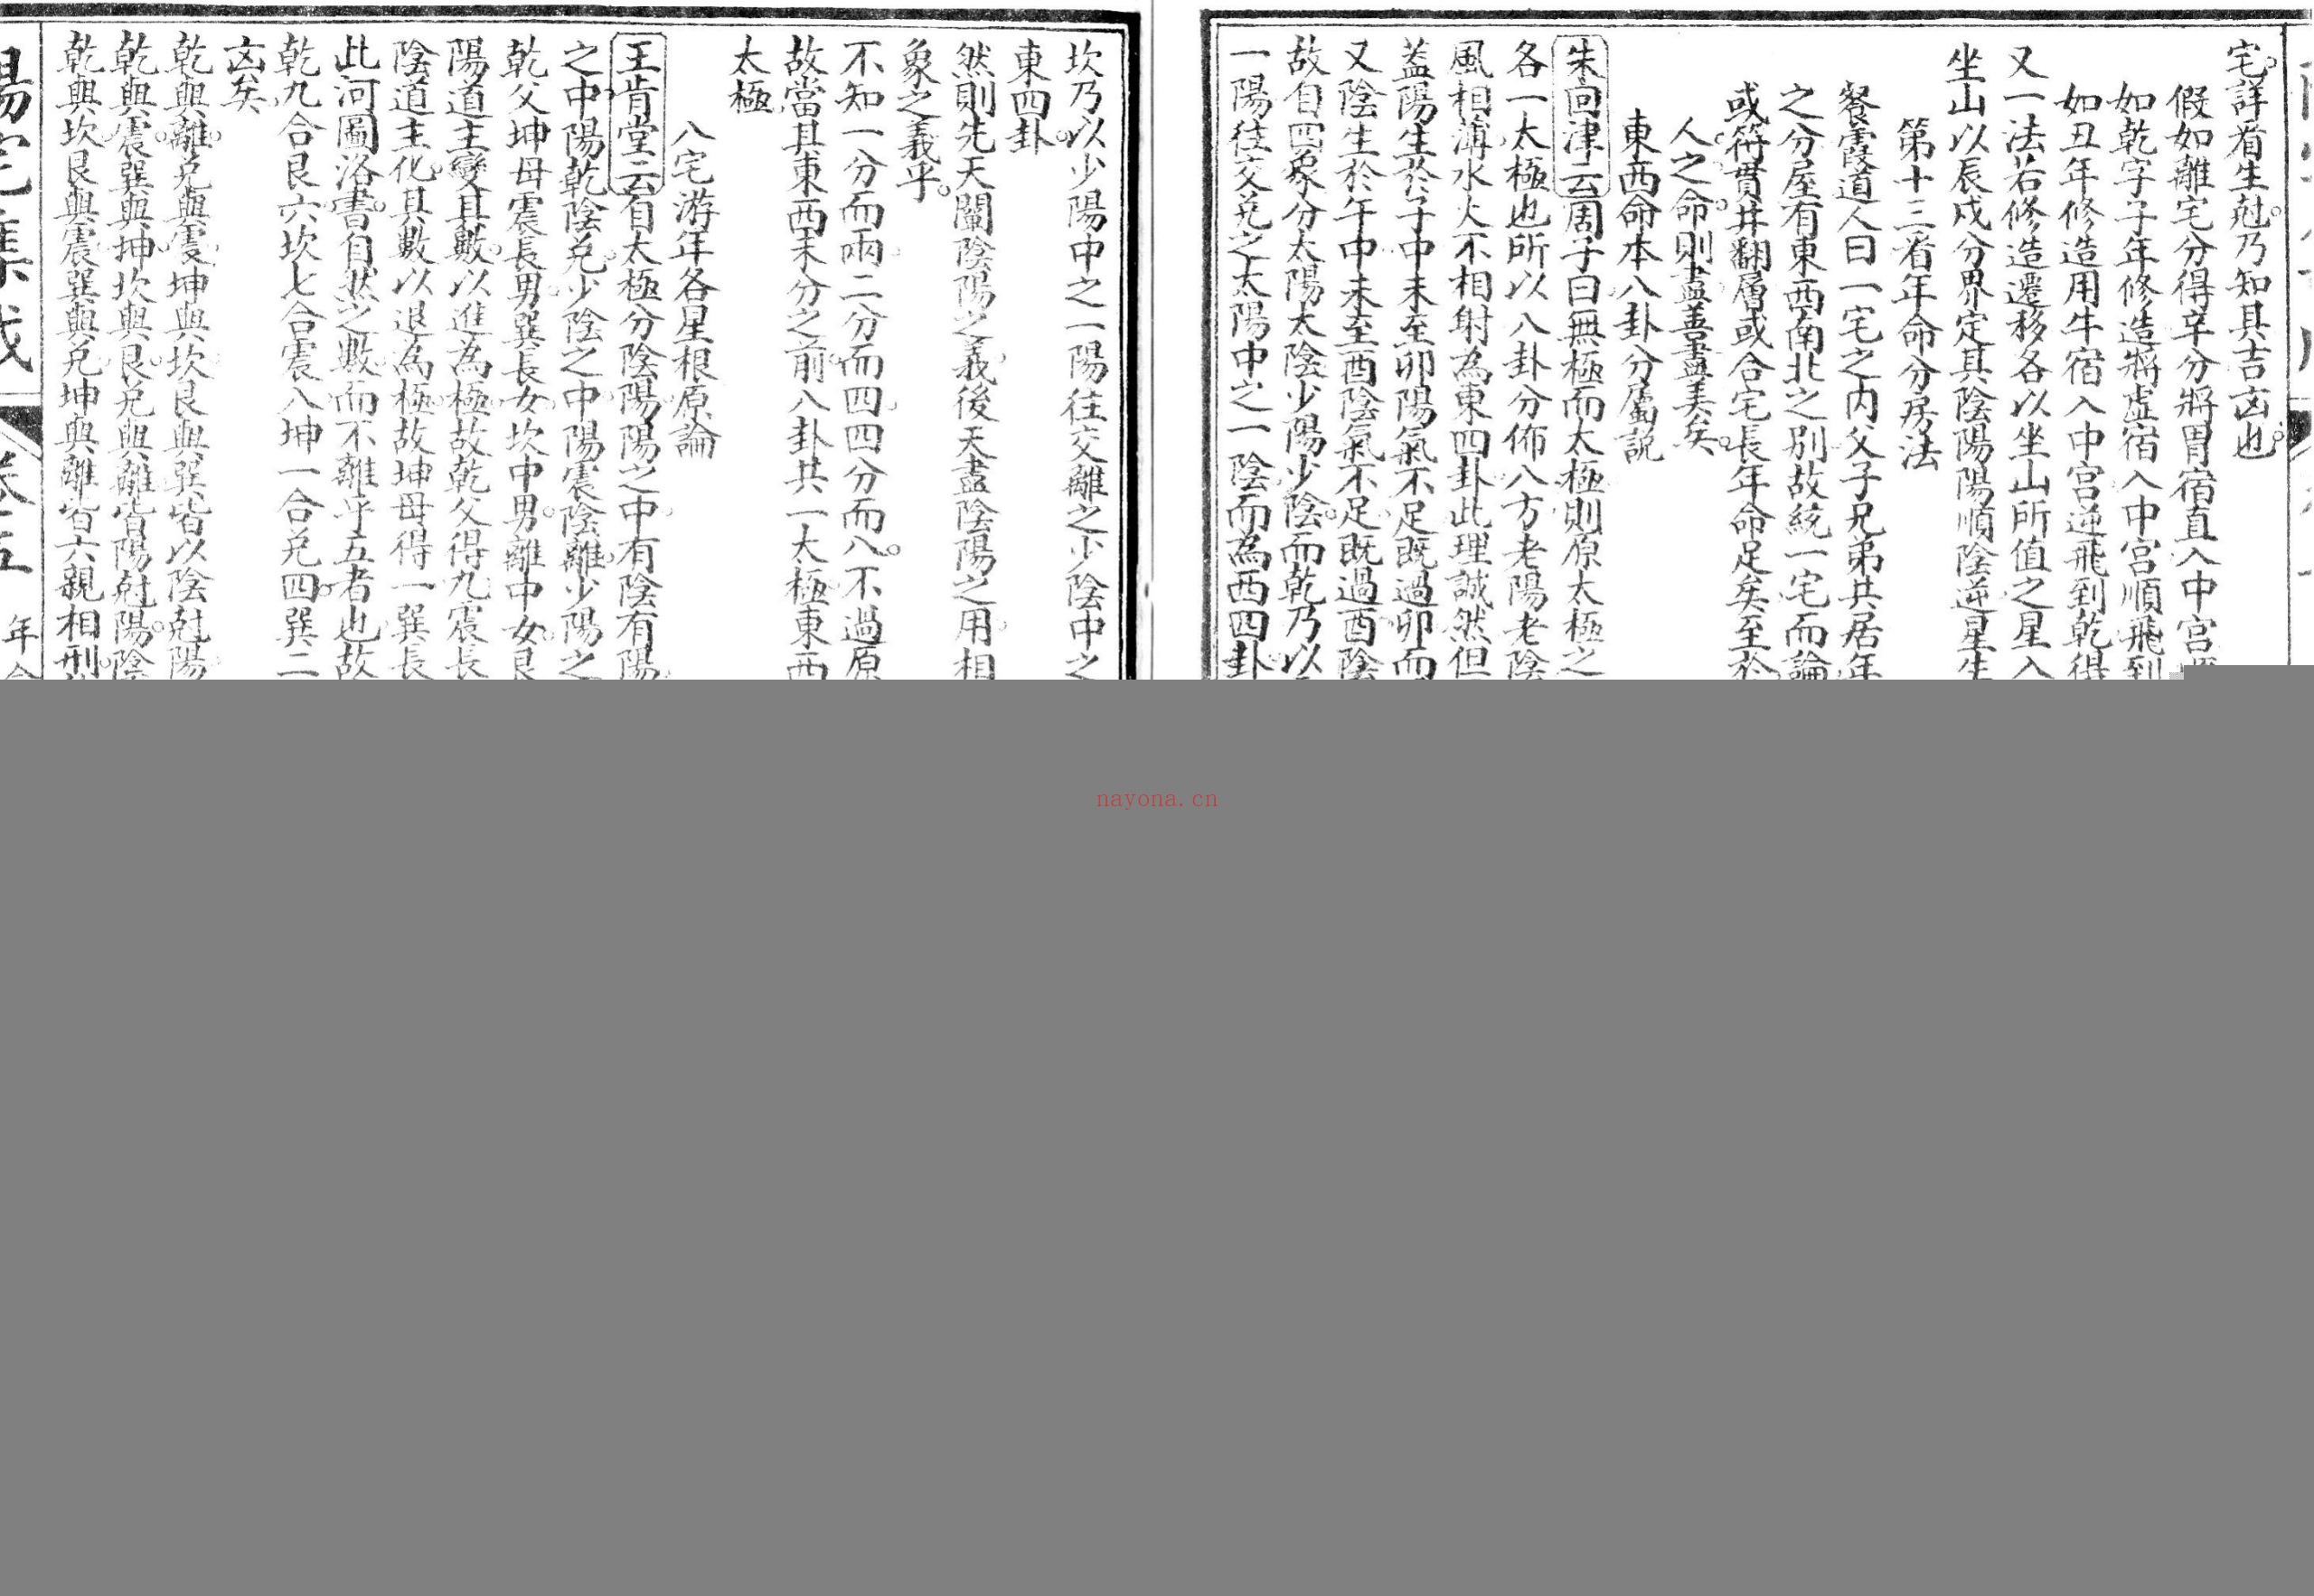 宅詳看生尅乃知其吉凶也
假如離宅分得辛分將胃宿直入中宮
如乾字子年修造將虛宿入中宮順飛到
如丑年修造用牛宿入中宮逆飛到乾得
又一法若修造遷移各以坐山所值之星入
坐山以辰戌分界定其陰陽陽順陰逆星生
第十三看年命分房法
餐霞道人曰一宅之內父子兄弟共居年
之分屋有東西南北之別故統一宅而論
或符貫井翻層或合宅長年命足矣至於
人之命則盡善盡美矣
東西命本八卦分屬說
朱向津云周子曰無極而太極則原太極之
各一太極也所以八卦分佈八方老陽老陰
風相薄水火不相射為東四卦此理誠然但
蓋陽生於子中未至卯陽氣不足既過卯而
又陰生於午中未至酉陰氣不足既過酉陰
故自四象分太陽太陰少陽少陰而乾乃以
一陽往交兌之太陽中之一陰而為西四卦
坎乃以少陽中之一陽往交離之少陰中之
東四卦
然則先天闡陰陽之義後天盡陰陽之用相
象之義乎
不知一分而兩二分而四四分而八不過原
故當其東西未分之前八卦共一太極東西
太極
八宅游年各星根原論
王肯堂云自太極分陰陽陽之中有陰有陽
之中陽乾陰兌少陰之中陽震陰離少陽之
乾父坤母震長男巽長女坎中男離中女艮
陽道主變其數以進為極故乾父得九震長
陰道主化其數以退為極故坤母得一巽長
此河圖洛書自然之數而不離乎五者也故
乾九合艮六坎七合震八坤一合兌四巽二
凶矣
乾與離兌與震坤與坎艮與巽皆以陰尅陽
乾與震巽與坤坎與艮兌與離皆陽尅陽陰
乾與坎艮與震巽與兌坤與離皆六親相刑
陽宅集成
卷五
年
nayona.cn